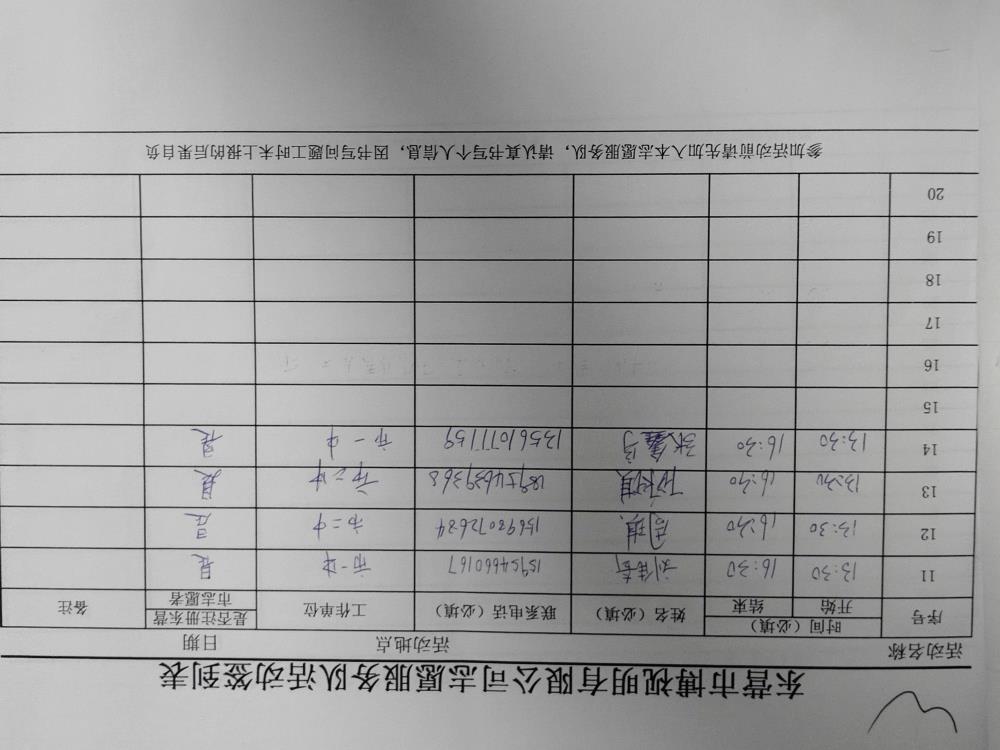 东营市博视明有限公司志愿服务队活动签到表
活动名称 活动地点 日期
序号 时间（必填） 开始 结束 姓名（必填） 联系电话（必填） 工作单位 是否注册东营市志愿者 备注
11 13:30 16:30 刘佳奇 15954660167 市一中 是
12 13:30 16:30 15698072684 市二中 是
13 13:30 16:30 市二中 是
14 13:30 16:30 张鑫宇 13561077159 市一中 是
15
16
17
18
19
20
参加活动前请先加入本志愿服务队，请认真书写个人信息，因书写问题工时未上报的后果自负